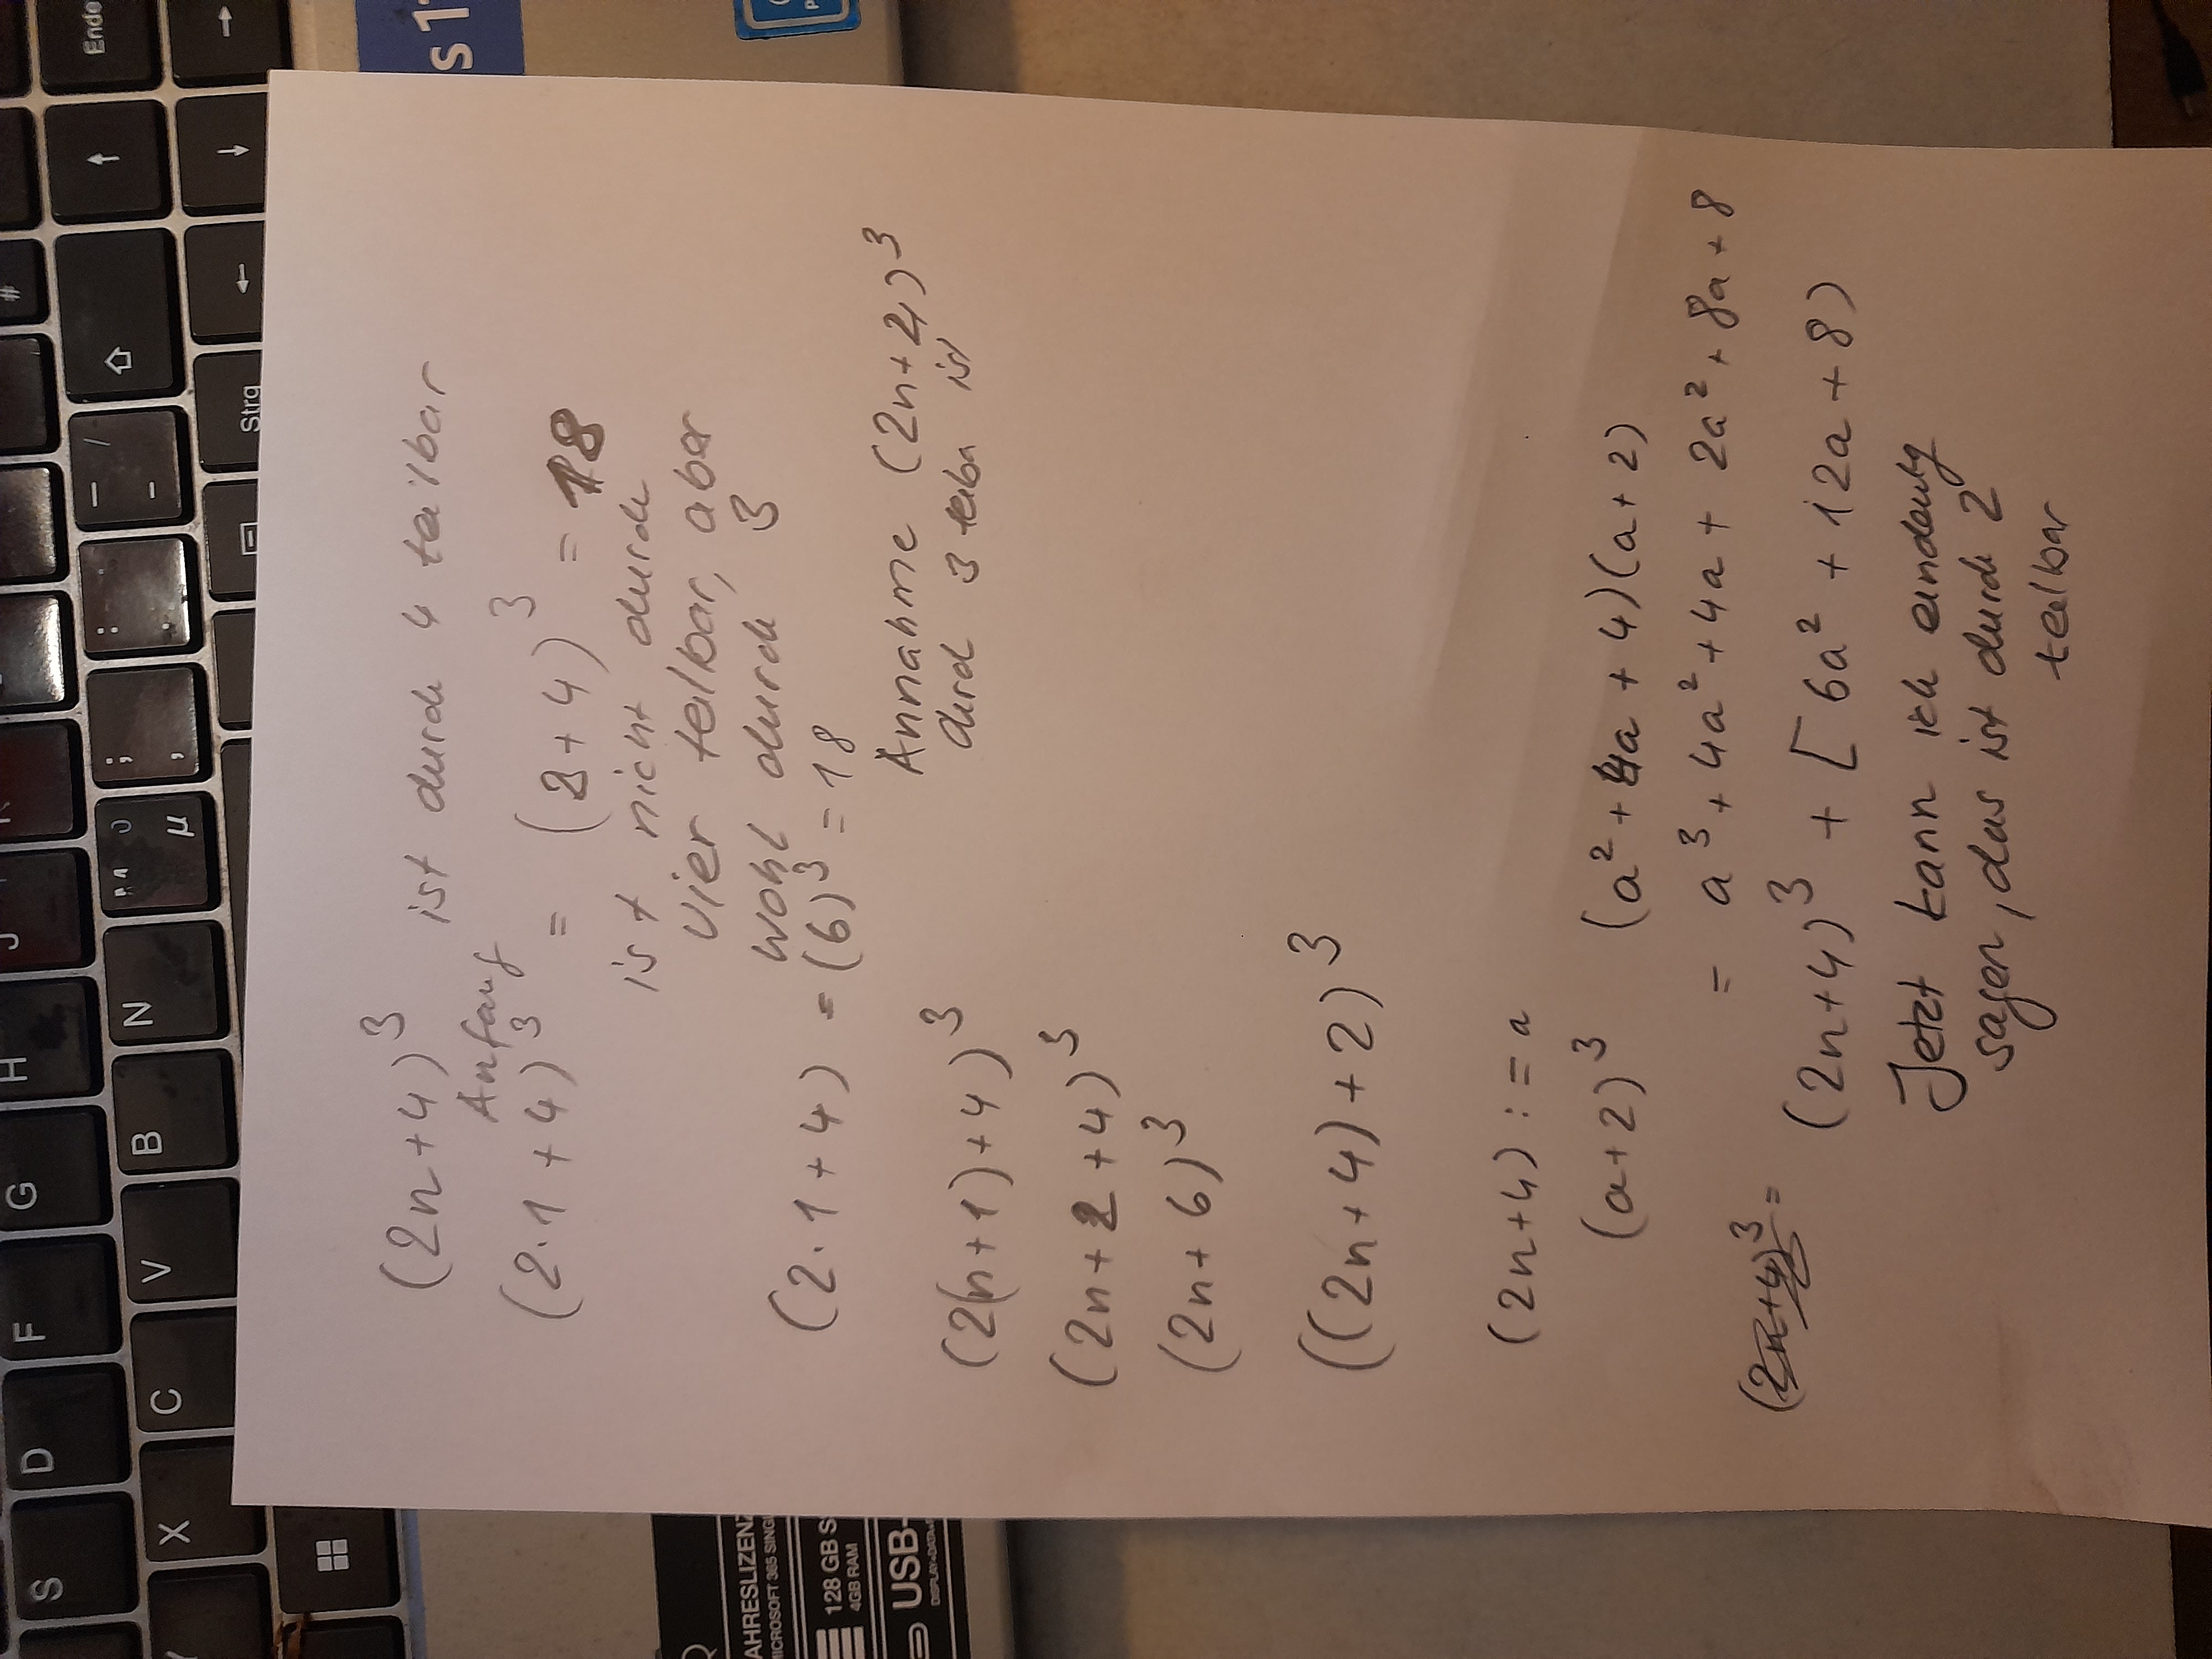 S D F G H J K #
Y X C V B N M μ ; , : . _ - Ende
Strg
s 1
AHRESLIZENZ
MICROSOFT 365 SINGL
128 GB S
4GB RAM
USB-
DISPLAY+DATA+
(2n+4)³ ist durch 4 teilbar
Anfang
(2·1+4)³ = (2+4)³ = 18
ist nicht durch
vier teilbar, aber
wohl durch 3
(2·1+4) = (6)³ = 18
Annahme (2n+4)³
durch 3 teilba ist
(2(n+1)+4)³
(2n+2+4)³
(2n+6)³
((2n+4)+2)³
(2n+4) := a
(a+2)³ (a²+4a+4)(a+2)
= a³+4a²+4a+2a²+8a+8
(2n+4)³ =
(2n+4)³ + [6a²+12a+8)
Jetzt kann ich eindeutig
sagen, das ist durch 2
teilbar